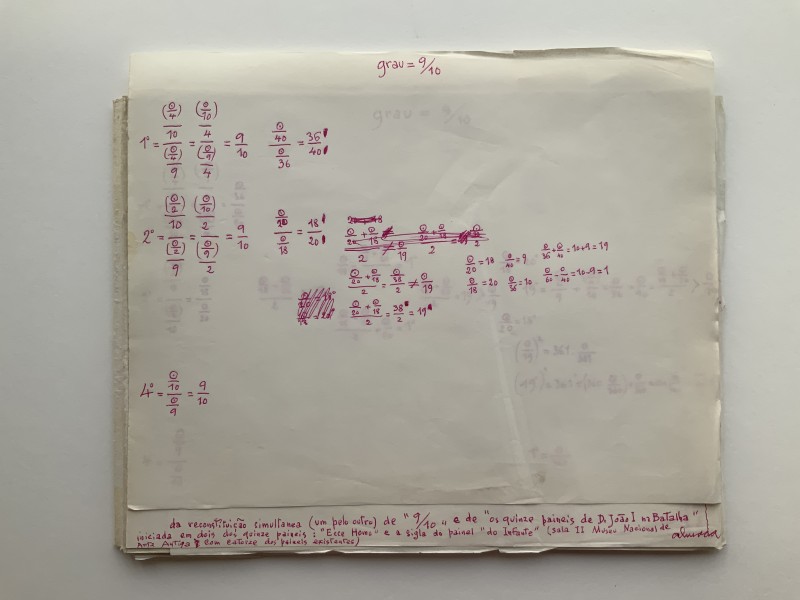 grau = 9/10
1º = ((⊙/4)/10)/((⊙/4)/9) = ((⊙/10)/4)/((⊙/9)/4) = 9/10 (⊙/40)/(⊙/36) = 36/40
2º = ((⊙/2)/10)/((⊙/2)/9) = ((⊙/10)/2)/((⊙/9)/2) = 9/10 (⊙/20)/(⊙/18) = 18/20
(⊙/20 + ⊙/18)/2 = (⊙/38)/2 ≠ ⊙/19
(⊙/20 + ⊙/18)/2 = 38º/2 = 19º
⊙/20 = 18 ⊙/40 = 9 ⊙/36 + ⊙/40 = 10+9 = 19
⊙/18 = 20 ⊙/36 = 10 ⊙/36 - ⊙/40 = 10-9 = 1
4º = (⊙/10)/(⊙/9) = 9/10
da reconstituição simultanea (um pelo outro) de "9/10" e de "os quinze paineis de D. João I na Batalha"
iniciada em dois dos quinze paineis: "Ecce Homo" e a sigla do painel "do Infante" (sala II Museu Nacional de
Arte Antiga com catorze dos paineis existentes)
almada